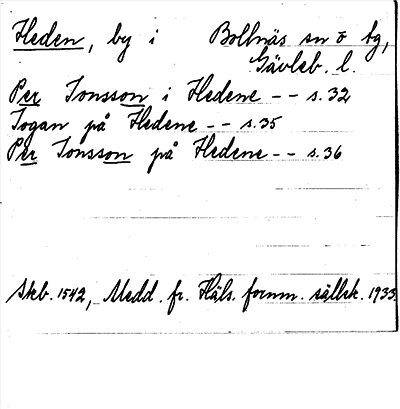 Heden, by i Bollnäs sn o tg,
Gävleb. l.
Per Jonsson i Hedene -- s. 32
Jogan på Hedene -- s. 35
Per Jonsson på Hedene -- s. 36
Skb. 1542, Medd. fr. Häls. fornm. sällsk. 1933.